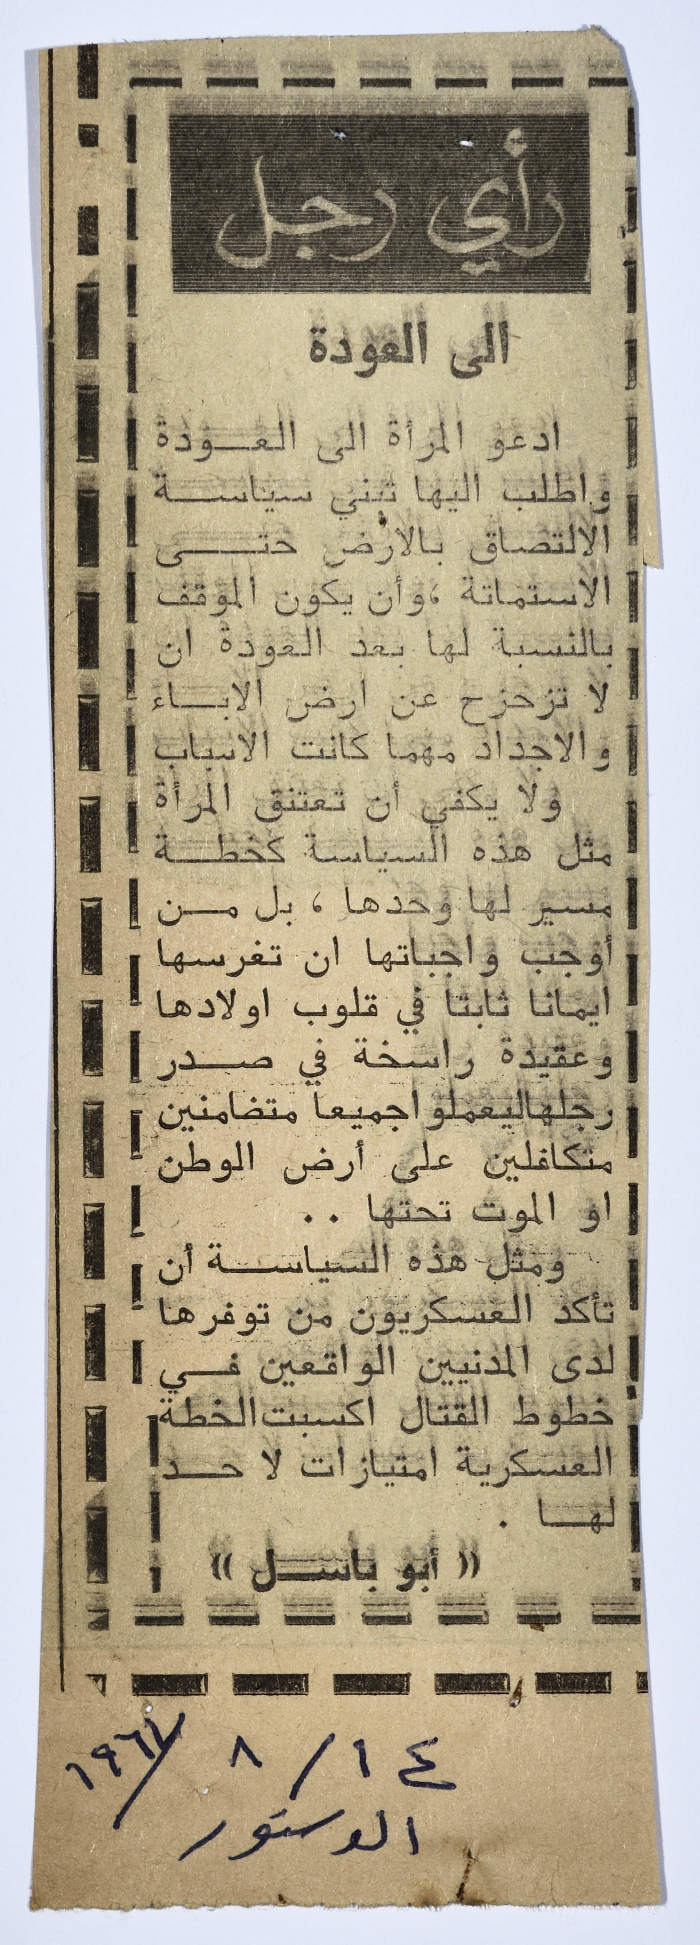 رأي رجل
الى العودة
ادعو المرأة الى العـودة
واطلب اليها تبني سياسـة
الالتصاق بالارض حتــى
الاستماتة ،وأن يكون الموقف
بالنسبة لها بعد العودة ان
لا تزحزح عن ارض الابـاء
والاجداد مهما كانت الاسباب
ولا يكفي أن تعتنق المرأة
مثل هذه السياسة كخطـة
مسير لها وحدها ، بل مـن
أوجب واجباتها ان تغرسها
ايمانا ثابتا في قلوب اولادها
وعقيدة راسخة في صـدر
رجلهاليعملواجميعا متضامنين
متكافلين على أرض الوطن
او الموت تحتها ..
ومثل هذه السياسـة أن
تأكد العسكريون من توفرها
لدى المدنيين الواقعين فـي
خطوط القتال اكسبت الخطة
العسكرية امتيازات لا حـد
لهـا .
(( أبو باسـل ))
١٤ / ٨ / ١٩٦٧
الدستور